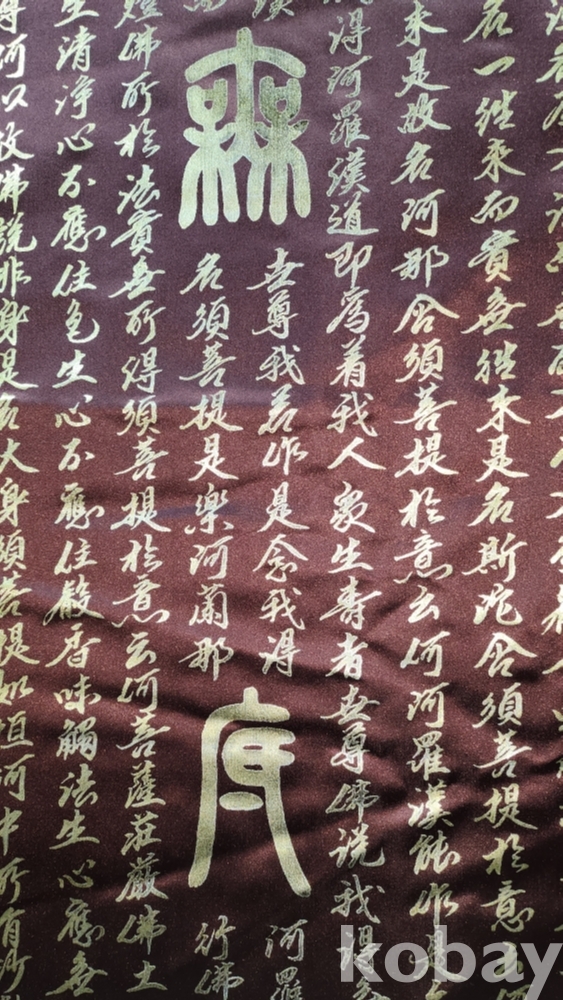 名一往来而實無往来是名斯陀含須菩提於意云何
来是故名阿那含須菩提於意云何阿羅漢能作是
得阿羅漢道即為着我人衆生壽者世尊佛說我得
無
世尊我若作是念我得
名須菩提是樂阿蘭那
阿羅
行佛
燈佛所於法實無所得須菩提於意云何菩薩莊嚴佛土
生清淨心不應住色生心不應住聲香味觸法生心應無
得何以故佛說非身是名大身須菩提如恒河中所有沙
kobay